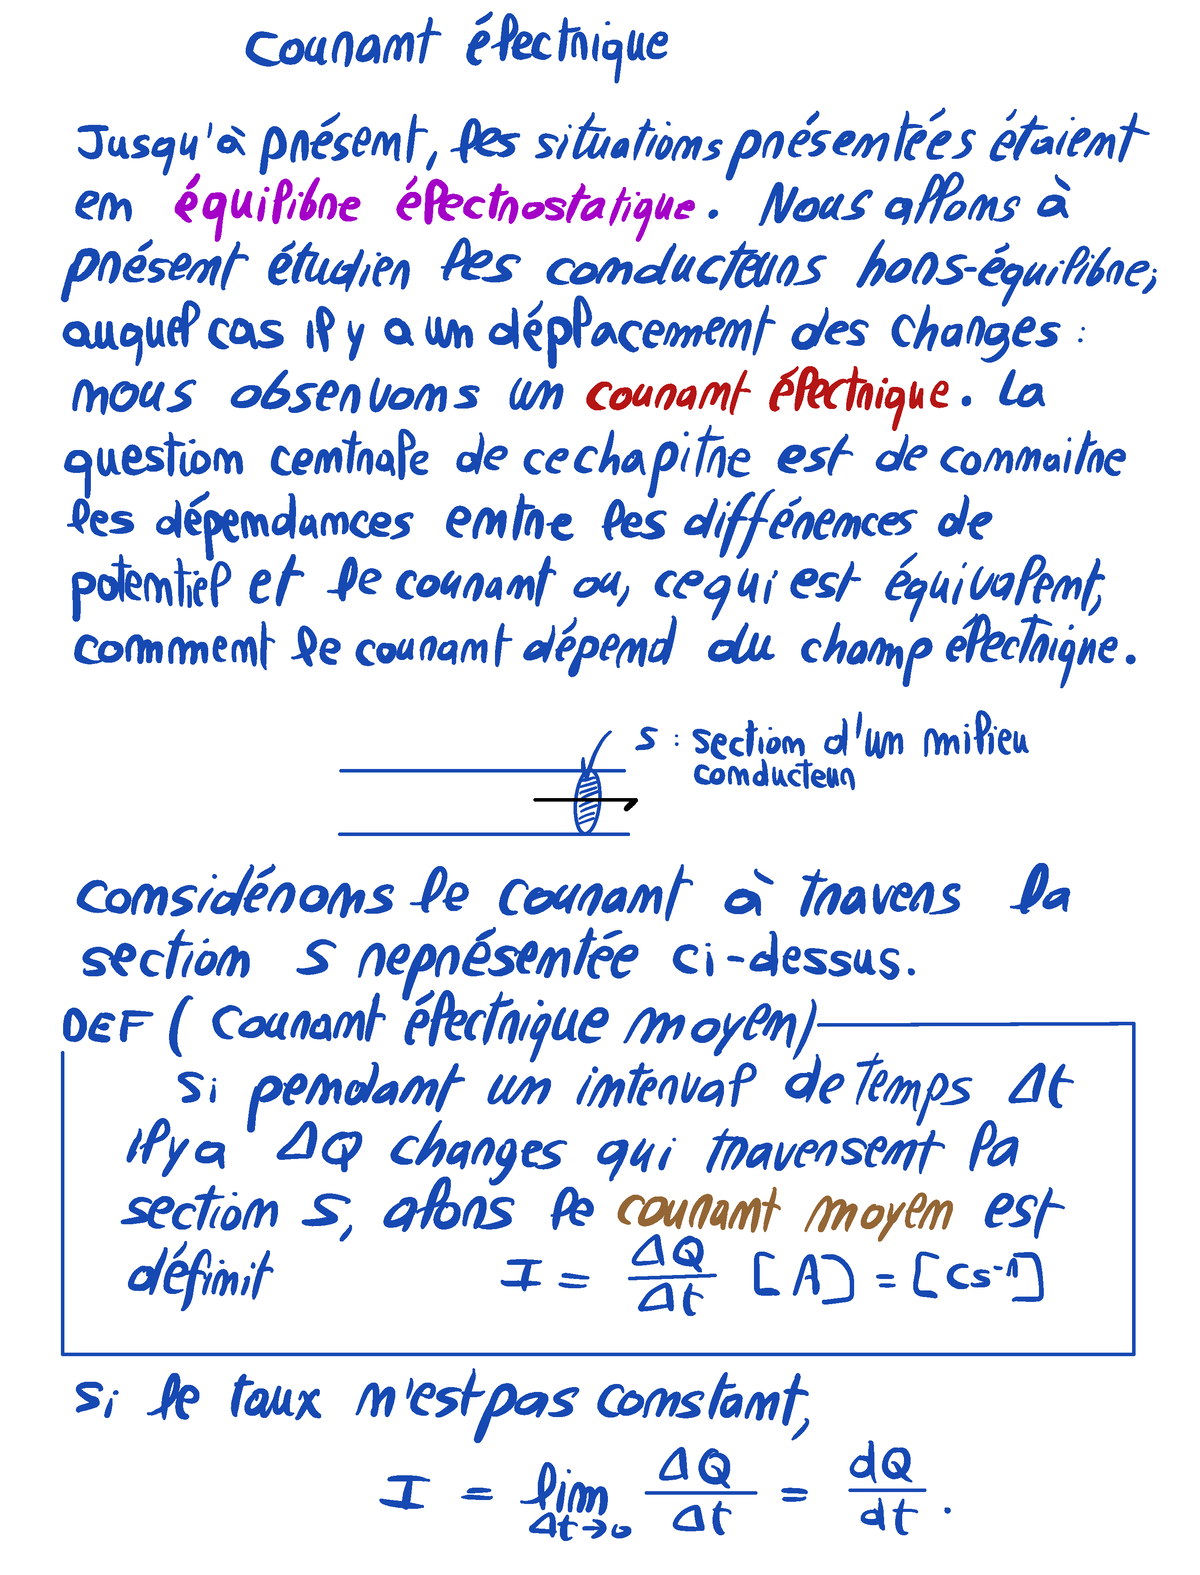 Courant électrique
Jusqu'à présent, les situations présentées étaient
en équilibre électrostatique. Nous allons à
présent étudier les conducteurs hors-équilibre,
auquel cas il y a un déplacement des charges :
nous observons un courant électrique. La
question centrale de ce chapitre est de connaitre
les dépendances entre les différences de
potentiel et le courant ou, ce qui est équivalent,
comment le courant dépend du champ electrique.
S : section d'un milieu
conducteur
Considérons le courant à travers la
section S représentée ci-dessus.
DEF (Courant électrique moyen)
Si pendant un interval de temps Δt
il y a ΔQ charges qui traversent la
section S, alors le courant moyen est
définit I = ΔQ/Δt [A] = [Cs⁻¹]
Si le taux n'est pas constant,
I = lim Δt→0 ΔQ/Δt = dQ/dt.